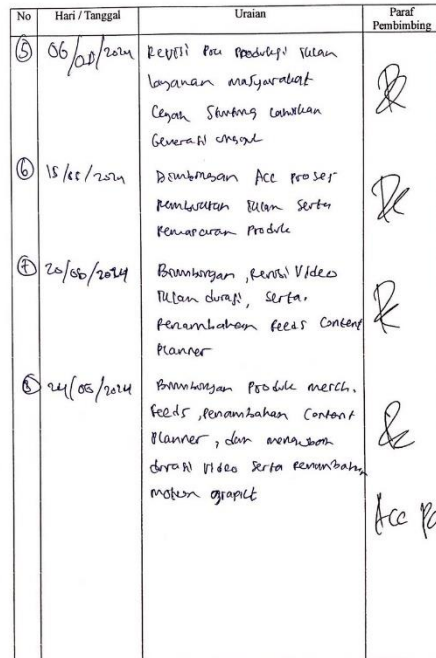 No Hari / Tanggal Uraian Paraf Pembimbing
5 06/ /2024 Revisi produksi iklan
layanan masyarakat
Cegah Stunting Lahirkan
Generasi unggul
6 15/ /2024 Bimbingan Acc proses
pembuatan iklan serta
pemasaran Produk
7 20/06/2024 Bimbingan, Revisi Video
iklan durasi, serta
Penambahan feeds Content
Planner
8 24/06/2024 Bimbingan Produk merch.
feeds, penambahan Content
Planner, dan
durasi video serta penambahan
motion
Acc